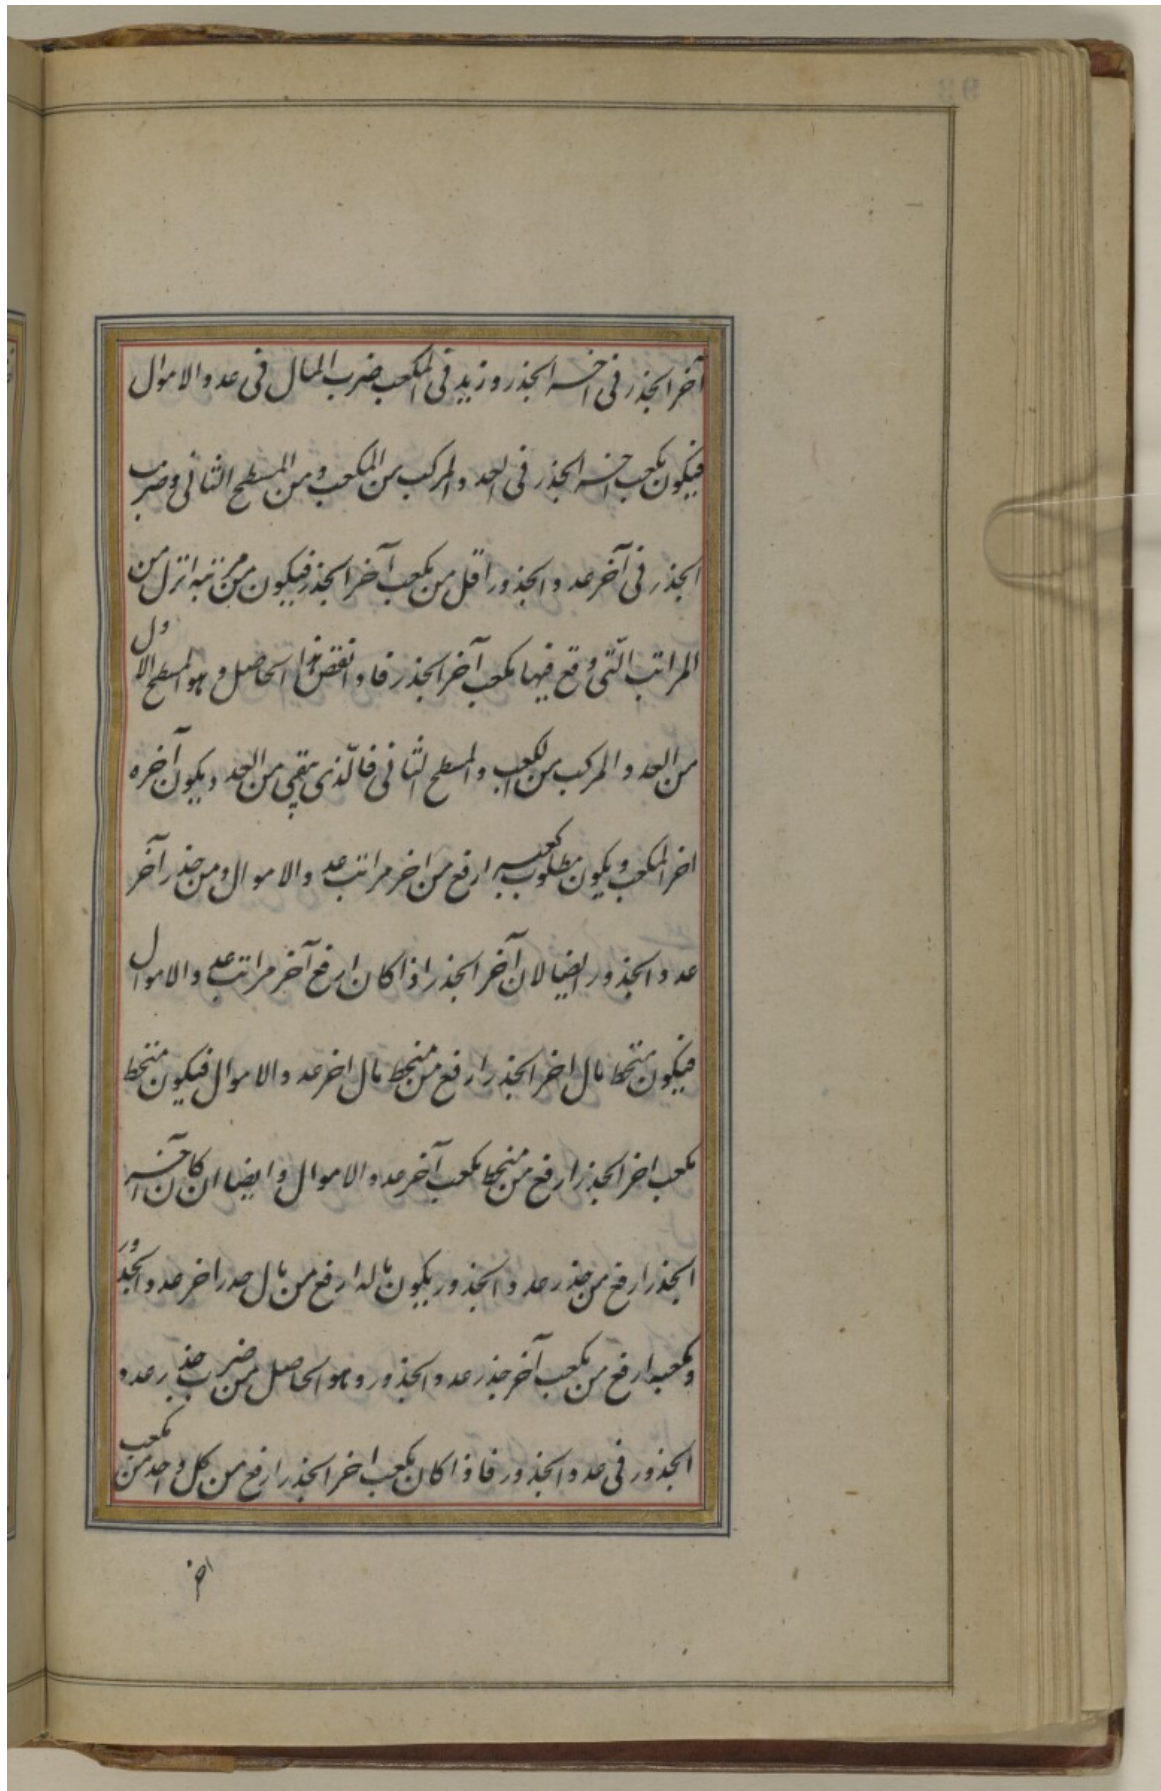 آخر الجذر فى اخر الجذر وزيد فى المكعب ضرب المال فى عدد الاموال
فيكون مكعب اخر الجذر فى العدد المركب من المكعب ومن المسطح الثانى وضرب
الجذر فى آخر عدد الجذور اقل من مكعب آخر الجذر فيكون من مرتبه انزل من
المراتب الّتى وقع فيها مكعب آخر الجذر فاذا نقص هذا الحاصل وهو المسطح الاول
من العدد المركب من المكعب والمسطح الثانى فالّذى يبقى من العدد يكون آخره
اخر المكعب ويكون مطلوب كعبيه ارفع من اخر مراتب عدد الاموال ومن جذر آخر
عدد الجذور ايضا لان آخر الجذر اذا كان ارفع آخر مراتب عدد الاموال
فيكون منحط مال اخر الجذر ارفع من منحط مال اخر عدد الاموال فيكون منحط
مكعب اخر الجذر ارفع من منحط مكعب آخر عدد الاموال وايضا ان كان آخر
الجذر ارفع من جذر عدد الجذور يكون ماله ارفع من مال جذر اخر عدد الجذور
ومكعبه ارفع من مكعب آخر جذر عدد الجذور وهو الحاصل من ضرب جذر عدد
الجذور فى عدد الجذور فاذا كان مكعب اخر الجذر ارفع من كل واحد من مكعب
اخر